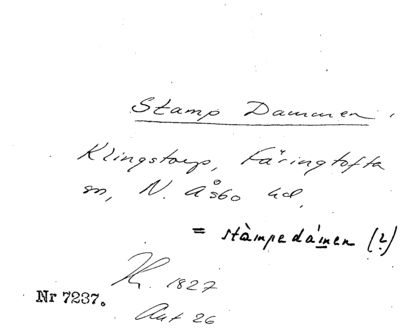 Stamp Dammen.
Klingstorp, Färingtofta
sn, N. Åsbo hd,
= stàmpedámen (?)
H. 1827
Nr 7237.
Akt 26